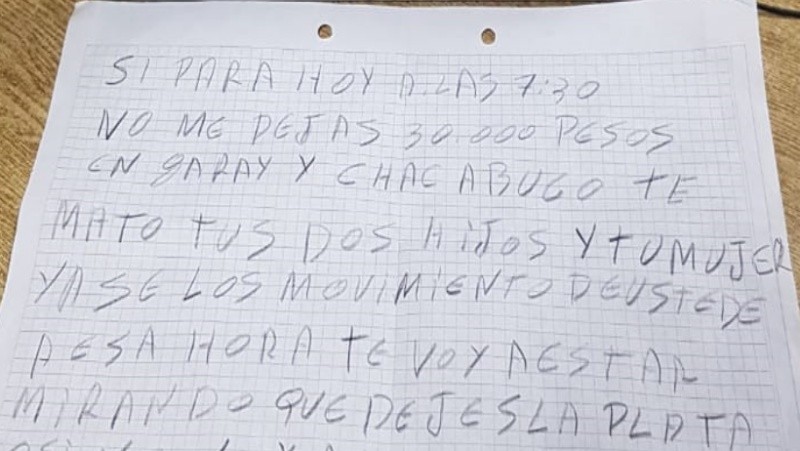 SI PARA HOY A LAS 7:30
NO ME DEJAS 30.000 PESOS
EN GARAY Y CHACABUCO TE
MATO TUS DOS HIJOS Y TU MUJER
YA SE LOS MOVIMIENTO DE USTEDE
A ESA HORA TE VOY A ESTAR
MIRANDO QUE DEJES LA PLATA